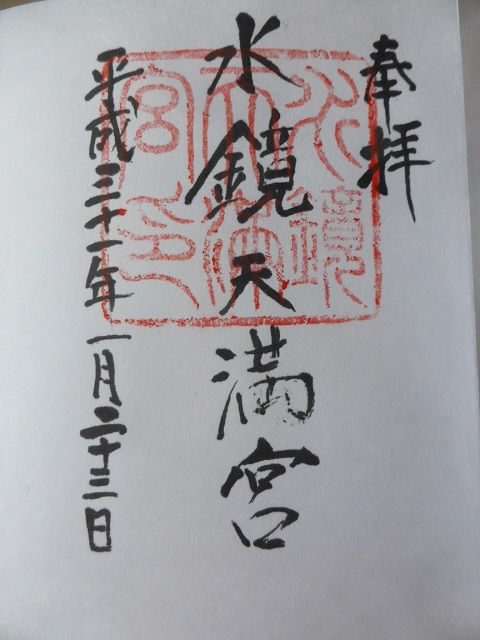 奉拝
水鏡天満宮
平成三十一年一月二十三日
水鏡
天満
宮印